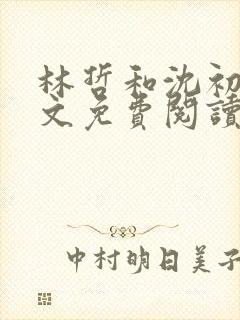 林哲和沈初
文免費閱讀
中村明日美子